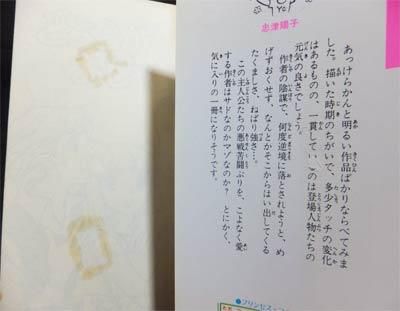 忠津陽子
あっけらかんと明るい作品ばかりならべてみま
した。描いた時期のちがいで、多少タッチの変化
はあるものの、一貫しているのは登場人物たちの
元気の良さでしょう。
作者の陰謀で、何度逆境に落とされようと、め
げずおくせず、なんとかそこからはい出してくる
たくましさ、ねばり強さ…。
この主人公たちの悪戦苦闘ぶりを、こよなく愛
する作者はサドなのかマゾなのか？とにかく、
気に入りの一冊になりそうです。
●プリンセス・コ